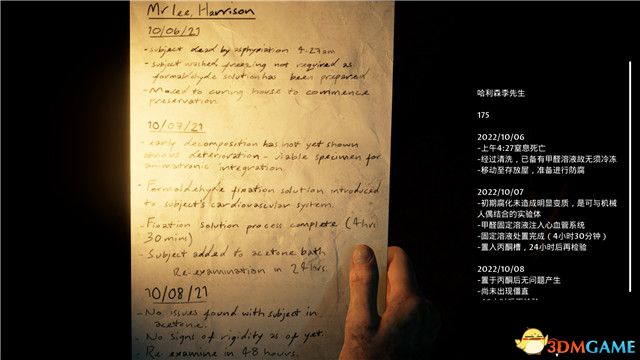 Mr Lee, Harrison
10/06/21
- subject dead by asphyxiation 4.27am
- subject washed, freezing not required as
formaldehyde solution has been prepared
- Moved to curing house to commence
preservation
10/07/21
- early decomposition has not yet shown
obvious deterioration - viable specimen for
animatronic integration.
- Formaldehyde fixation solution introduced
to subject's cardiovascular system.
- Fixation Solution process complete (4hrs
30 mins)
- Subject added to acetone bath
Re-examination in 24hrs.
10/08/21
- No issues found with subject in
acetone.
- No signs of rigidity as of yet.
- Re examine in 48 hours.
哈利森李先生
175
2022/10/06
-上午4:27窒息死亡
-经过清洗，已备有甲醛溶液故无须冷冻
-移动至存放屋，准备进行防腐
2022/10/07
-初期腐化未造成明显变质，是可与机械
人偶结合的实验体
-甲醛固定溶液注入心血管系统
-固定溶液处置完成（4小时30分钟）
-置入丙酮槽，24小时后再检验
2022/10/08
-置于丙酮后无问题产生
-尚未出现僵直
3DMGAME